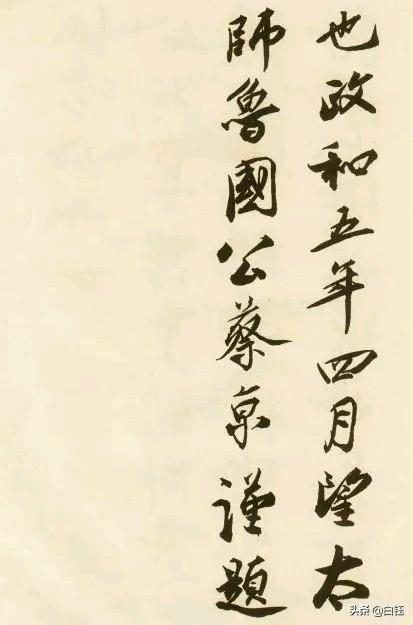 也政和五年四月望太
師魯國公蔡京謹題
头条 @白钰